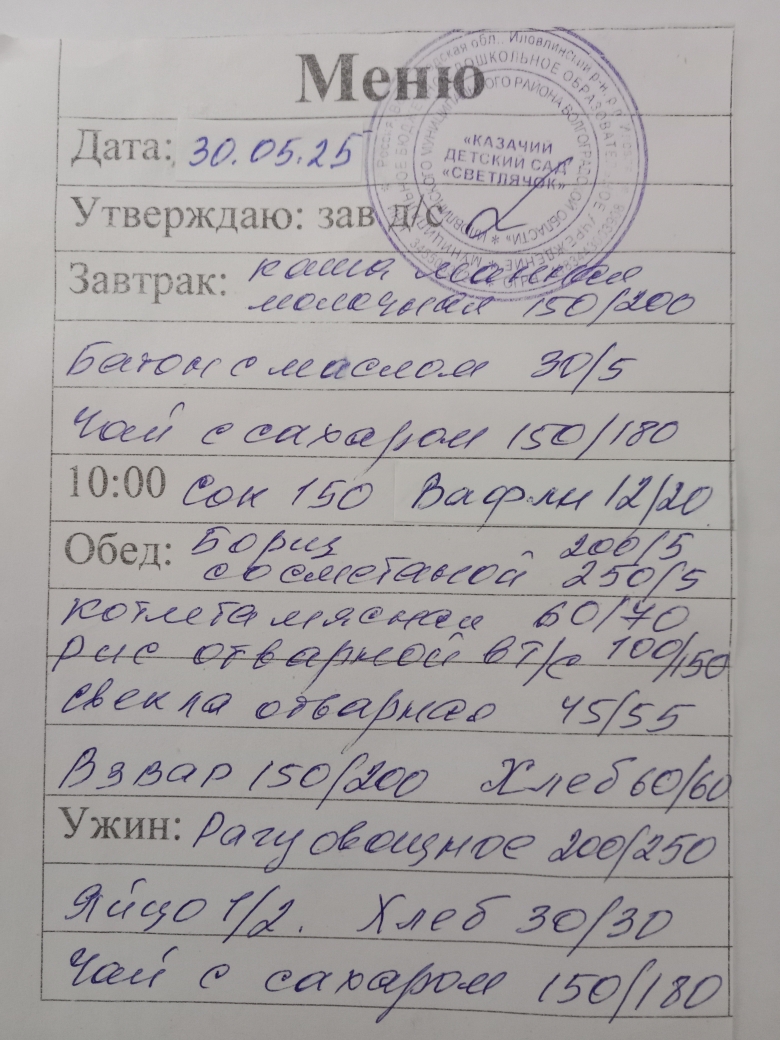 Меню
Дата: 30.05.25
«КАЗАЧИЙ
ДЕТСКИЙ САД
«СВЕТЛЯЧОК»
Утверждаю: зав д/с
Завтрак: каша манная
молочная 150/200
Батон с маслом 30/5
Чай с сахаром 150/180
10:00 Сок 150 Вафли 12/20
Обед: Борщ 200/5
со сметаной 250/5
котлета мясная 60/70
рис отварной в т/с 100/150
свекла отварная 45/55
Взвар 150/200 Хлеб 60/60
Ужин: Рагу овощное 200/250
Яйцо 1/2. Хлеб 30/30
Чай с сахаром 150/180